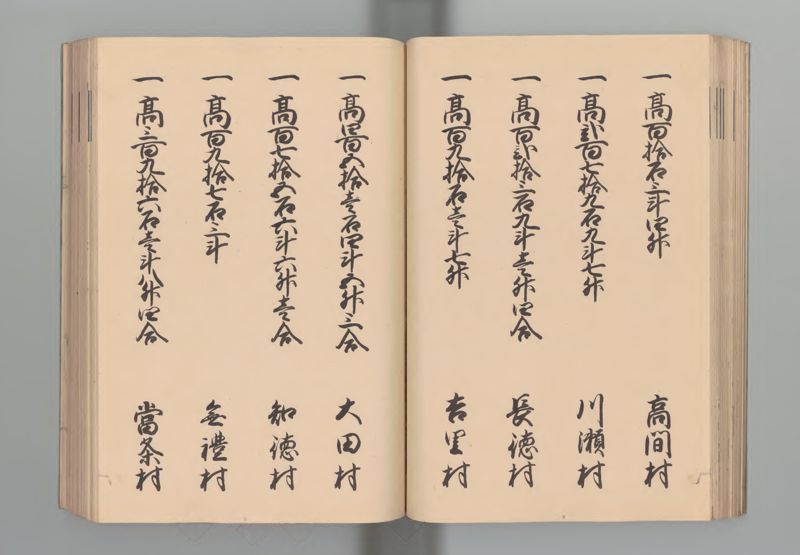 一高百拾石三斗四升
高間村
一高弐百七拾九石九斗七升
川瀬村
一高百弐拾三石九斗壱升四合
長徳村
一高百九拾石壱斗七升
吉里村
一高四百五拾壱石四斗五升三合
大田村
一高百七拾五石六斗六升壱合
知徳村
一高百九拾七石三斗
禮村
一高三百九拾六石壱斗八升四合
當条村